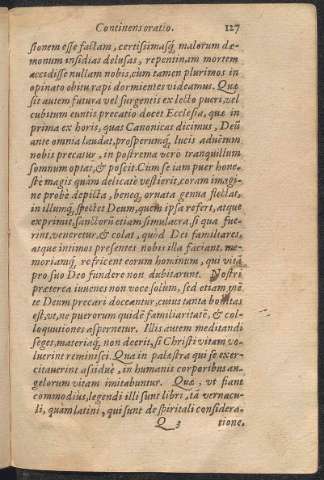 Continens oratio. 127
sionem esse factam, certissimasq́, malorum dæ-
monum insidias delusas, repentinam mortem
accidisse nullam nobis, cùm tamen plurimos in
opinato obitu rapi dormientes videamus. Quæ
sit autem futura vel surgentis ex lecto pueri, vel
cubitum euntis precatio docet Ecclesia, que in
prima ex horis, quas Canonicas dicimus, Deũ
ante omnia laudat, prosperumq́, lucis aduẽtum
nobis precatur, in postrema verò tranquillum
somnum optat, & poscit. Cum se iam puer hone-
stè magis quàm delicatè vestierit, coram imagi-
ne probè depicta, beneq́, ornata genua flectat,
in illumq́, spectet Deum, quem ipsa refert, atque
exprimit, sanctorũ etiam simulacra, si qua fue-
rint, veneretur, & colat, quòd Dei familiares,
atque intimos presentes nobis illa faciant, me-
moriamq́, refricent eorum hominum, qui vitã
pro suo Deo fundere non dubitarunt. Nostri
præterea iuuenes non voce solùm, sed etiam mẽ
te Deum precari doceantur, cuius tanta bonitas
est, vt, ne puerorum quidẽ familiaritatẽ, & col-
loquutiones aspernetur. Illis autem meditandi
seges, materiaq́, non deerit, si Christi vitam vo-
luerint reminisci. Qua in palæstra qui se exer-
citauerint assiduè, in humanis corporibus an-
gelorum vitam imitabuntur. Quæ, vt fiant
commodius, legendi illi sunt libri, tã vernacu-
li, quam latini, qui sunt de spiritali considera-
Q 3 tione.